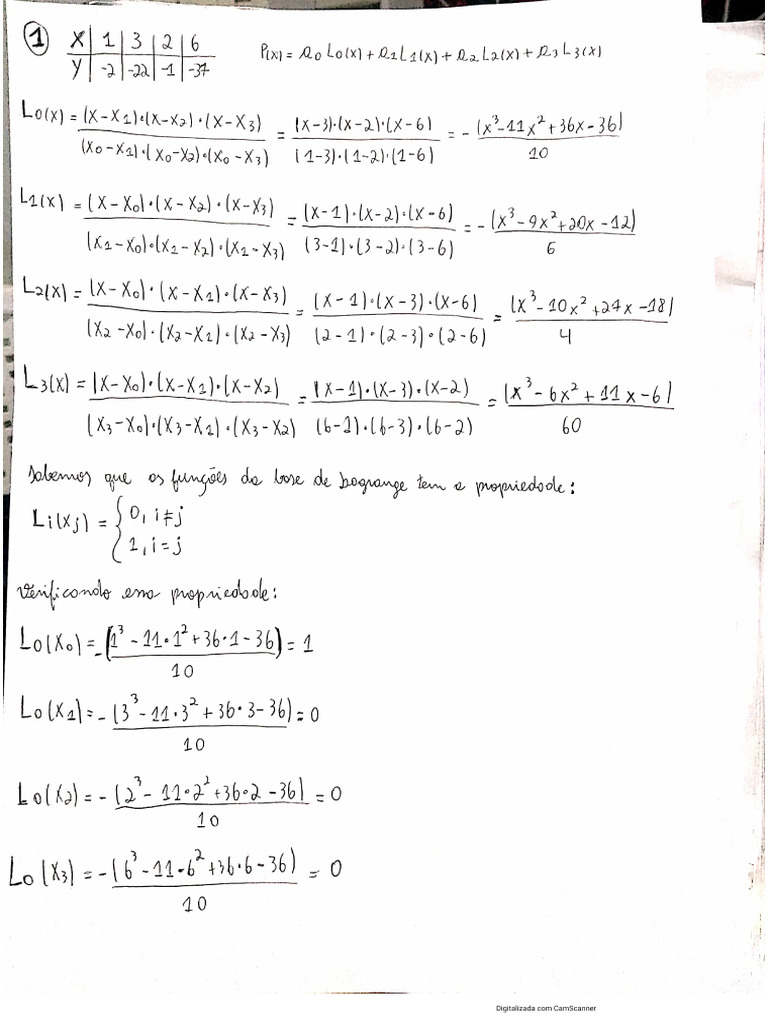 1 X | 1 | 3 | 2 | 6
Y | -2 | -22 | -1 | -37
P(x) = a0 L0(x) + a1 L1(x) + a2 L2(x) + a3 L3(x)
L0(x) = (x-x1)•(x-x2)•(x-x3) / (x0-x1)•(x0-x2)•(x0-x3) = (x-3)•(x-2)•(x-6) / (1-3)•(1-2)•(1-6) = -(x³-11x²+36x-36) / 10
L1(x) = (x-x0)•(x-x2)•(x-x3) / (x1-x0)•(x1-x2)•(x1-x3) = (x-1)•(x-2)•(x-6) / (3-1)•(3-2)•(3-6) = -(x³-9x²+20x-12) / 6
L2(x) = (x-x0)•(x-x1)•(x-x3) / (x2-x0)•(x2-x1)•(x2-x3) = (x-1)•(x-3)•(x-6) / (2-1)•(2-3)•(2-6) = (x³-10x²+27x-18) / 4
L3(x) = (x-x0)•(x-x1)•(x-x2) / (x3-x0)•(x3-x1)•(x3-x2) = (x-1)•(x-3)•(x-2) / (6-1)•(6-3)•(6-2) = (x³-6x²+11x-6) / 60
Sabemos que as funções da base de Lagrange tem a propriedade:
Li(xj) = { 0, i≠j
1, i=j
Verificando essa propriedade:
L0(x0) = -(1³-11•1²+36•1-36) / 10 = 1
L0(x1) = -(3³-11•3²+36•3-36) / 10 = 0
L0(x2) = -(2³-11•2²+36•2-36) / 10 = 0
L0(x3) = -(6³-11•6²+36•6-36) / 10 = 0
Digitalizada com CamScanner